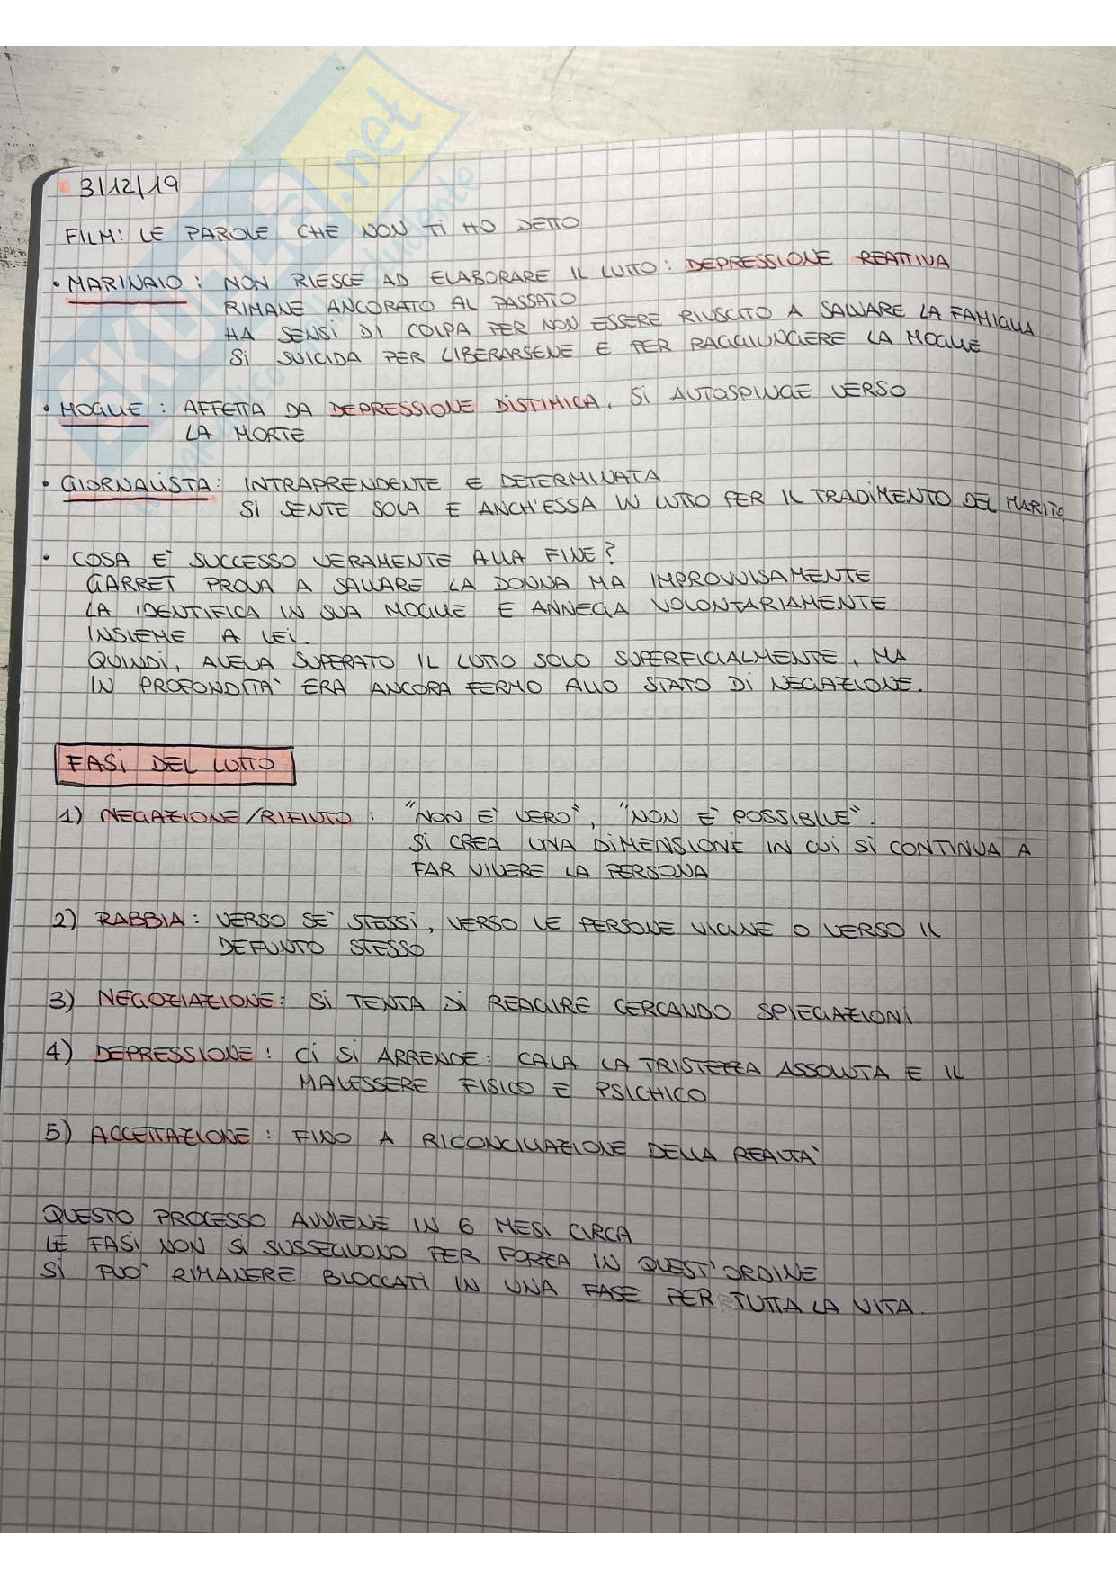 3/12/19
FILM: LE PAROLE CHE NON TI HO DETTO
• MARINAIO: NON RIESCE AD ELABORARE IL LUTTO: DEPRESSIONE REATTIVA
RIMANE ANCORATO AL PASSATO
HA SENSI DI COLPA PER NON ESSERE RIUSCITO A SALVARE LA FAMIGLIA
SI SUICIDA PER LIBERARSENE E PER RAGGIUNGERE LA MOGLIE
• MOGLIE: AFFETTA DA DEPRESSIONE DISTIMICA, SI AUTOSPINGE VERSO
LA MORTE
• GIORNALISTA: INTRAPRENDENTE E DETERMINATA
SI SENTE SOLA E ANCH'ESSA IN LUTTO PER IL TRADIMENTO DEL MARITO
• COSA E' SUCCESSO VERAMENTE ALLA FINE?
GARRET PROVA A SALVARE LA DONNA MA IMPROVVISAMENTE
LA IDENTIFICA IN SUA MOGLIE E ANNEGA VOLONTARIAMENTE
INSIEME A LEI.
QUINDI, AVEVA SUPERATO IL LUTTO SOLO SUPERFICIALMENTE, MA
IN PROFONDITA' ERA ANCORA FERMO ALLO STATO DI NEGAZIONE.
FASI DEL LUTTO
1) NEGAZIONE/RIFIUTO: "NON E' VERO", "NON E' POSSIBILE".
SI CREA UNA DIMENSIONE IN CUI SI CONTINUA A
FAR VIVERE LA PERSONA
2) RABBIA: VERSO SE' STESSI, VERSO LE PERSONE VICINE O VERSO IL
DEFUNTO STESSO
3) NEGOZIAZIONE: SI TENTA DI REAGIRE CERCANDO SPIEGAZIONI
4) DEPRESSIONE: CI SI ARRENDE: CALA LA TRISTEZZA ASSOLUTA E IL
MALESSERE FISICO E PSICHICO
5) ACCETTAZIONE: FINO A RICONCILIAZIONE DELLA REALTA'
QUESTO PROCESSO AVVIENE IN 6 MESI CIRCA
LE FASI NON SI SUSSEGUONO PER FORZA IN QUEST'ORDINE
SI PUO' RIMANERE BLOCCATI IN UNA FASE PER TUTTA LA VITA.